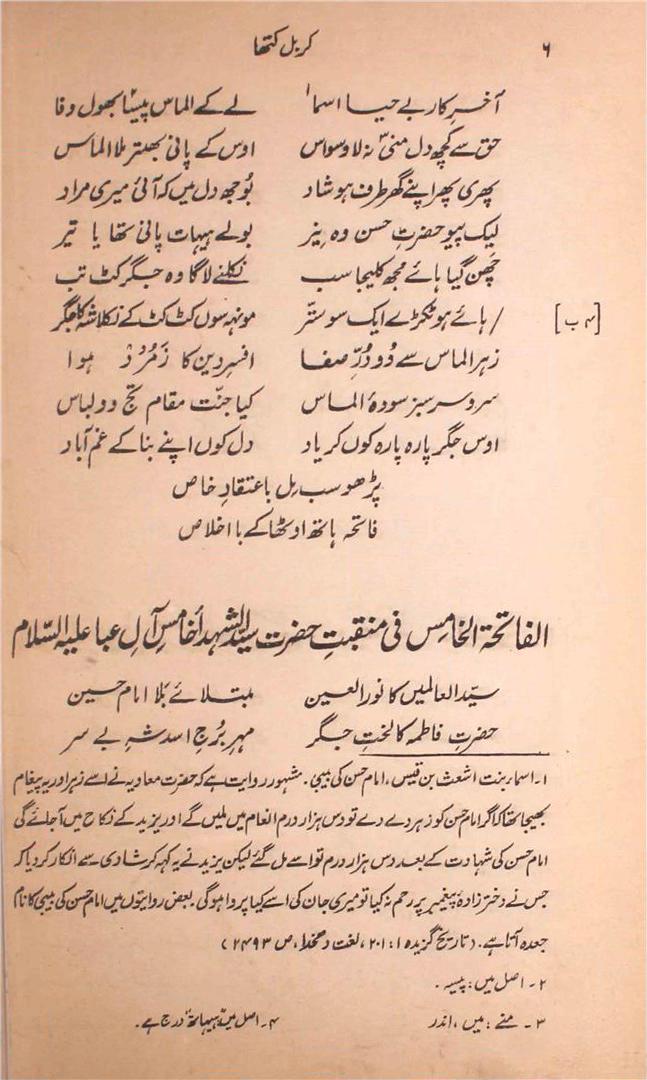 ۶ کربل کتھا
آخرِ کار بے حیا اسما۱ لے کے الماس پیسا۲ بھول وفا
حق سے کچھ دل منیں۳ نہ لا وسواس اوس کے پانی بھیتر ملا الماس
پھری پھر اپنے گھر طرف ہو شاد بُوجھ دل میں کہ آئی میری مراد
لیک پیو حضرتِ حسن وہ نیر بولے ہیہات پانی تھا یا تیر
چَھن گیا ہائے مجھ کلیجا سب نکلنے لاگا وہ جگر کٹ تب
/ ہائے ہو ٹکڑے ایک سو ستّر مونہہ سوں کٹ کٹ کے نکلا شہ کا جگر [۴ ب]
زہر الماس سے وُو دُرِّ صفا افسرِ دین کا زَمُرُّد ہوا
سروِ سر سبز سودۂ الماس کیا جنّت مقام تج وو لباس
اوس جگر پارہ پارہ کوں کر یاد دل کوں اپنے بنا کے غم آباد
پڑھو سب مِل باعتقادِ خاص
فاتحہ ہاتھ اوٹھا کے با اخلاص
الفاتحۃ الخامس فی منقبتِ حضرت سیّد الشہدأ خامسِ آلِ عبا علیہ السّلام
سیّد العالمیں کا نور العین مبتلائے بَلا امام حسین
حضرتِ فاطمہ کا لختِ جگر مہرِ بُرجِ اسد شہِ بے سر
۱۔ اسما بنت اشعث بن قیس، امام حسن کی بیبی۔ مشہور روایت ہے کہ حضرت معاویہ نے اسے زہر اور یہ پیغام
بھیجا تھا کہ اگر امام حسن کو زہر دے دے تو دس ہزار درم انعام میں ملیں گے اور یزید کے نکاح میں آجائے گی
امام حسن کی شہادت کے بعد دس ہزار درم تو اسے مل گئے لیکن یزید نے یہ کہہ کر شادی سے انکار کر دیا کہ
جس نے دختر زادۂ پیغمبر پر رحم نہ کیا تو میری جان کی اسے کیا پروا ہوگی۔ بعض روایتوں میں امام حسن کی بیبی کا نام
جعدہ آتا ہے۔ (تاریخ گزیدہ ۱: ۲۰۱، لغت دہخدا، ص ۲۴۹۳)
۲۔ اصل میں: پیسہ۔
۳۔ منے: میں، اندر ۴۔ اصل میں ہیہاتھ درج ہے۔